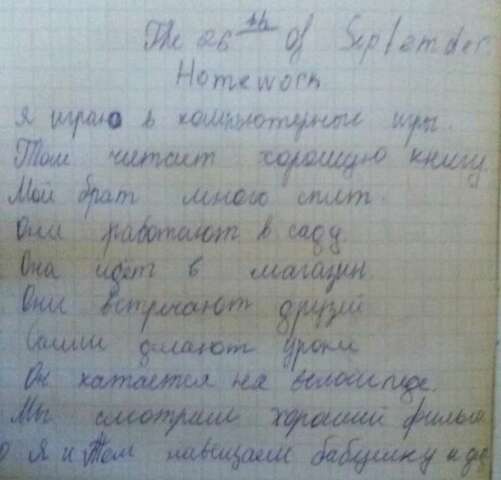 The 26th of September
Homework
Я играю в компьютерные игры.
Том читает хорошую книгу
Мой брат много спит.
Они работают в саду
Она идёт в магазин.
Они встречают друзей
делают уроки
Он катается на велосипеде.
Мы смотрим хороший фильм
Я и Том навещаем бабушку и де